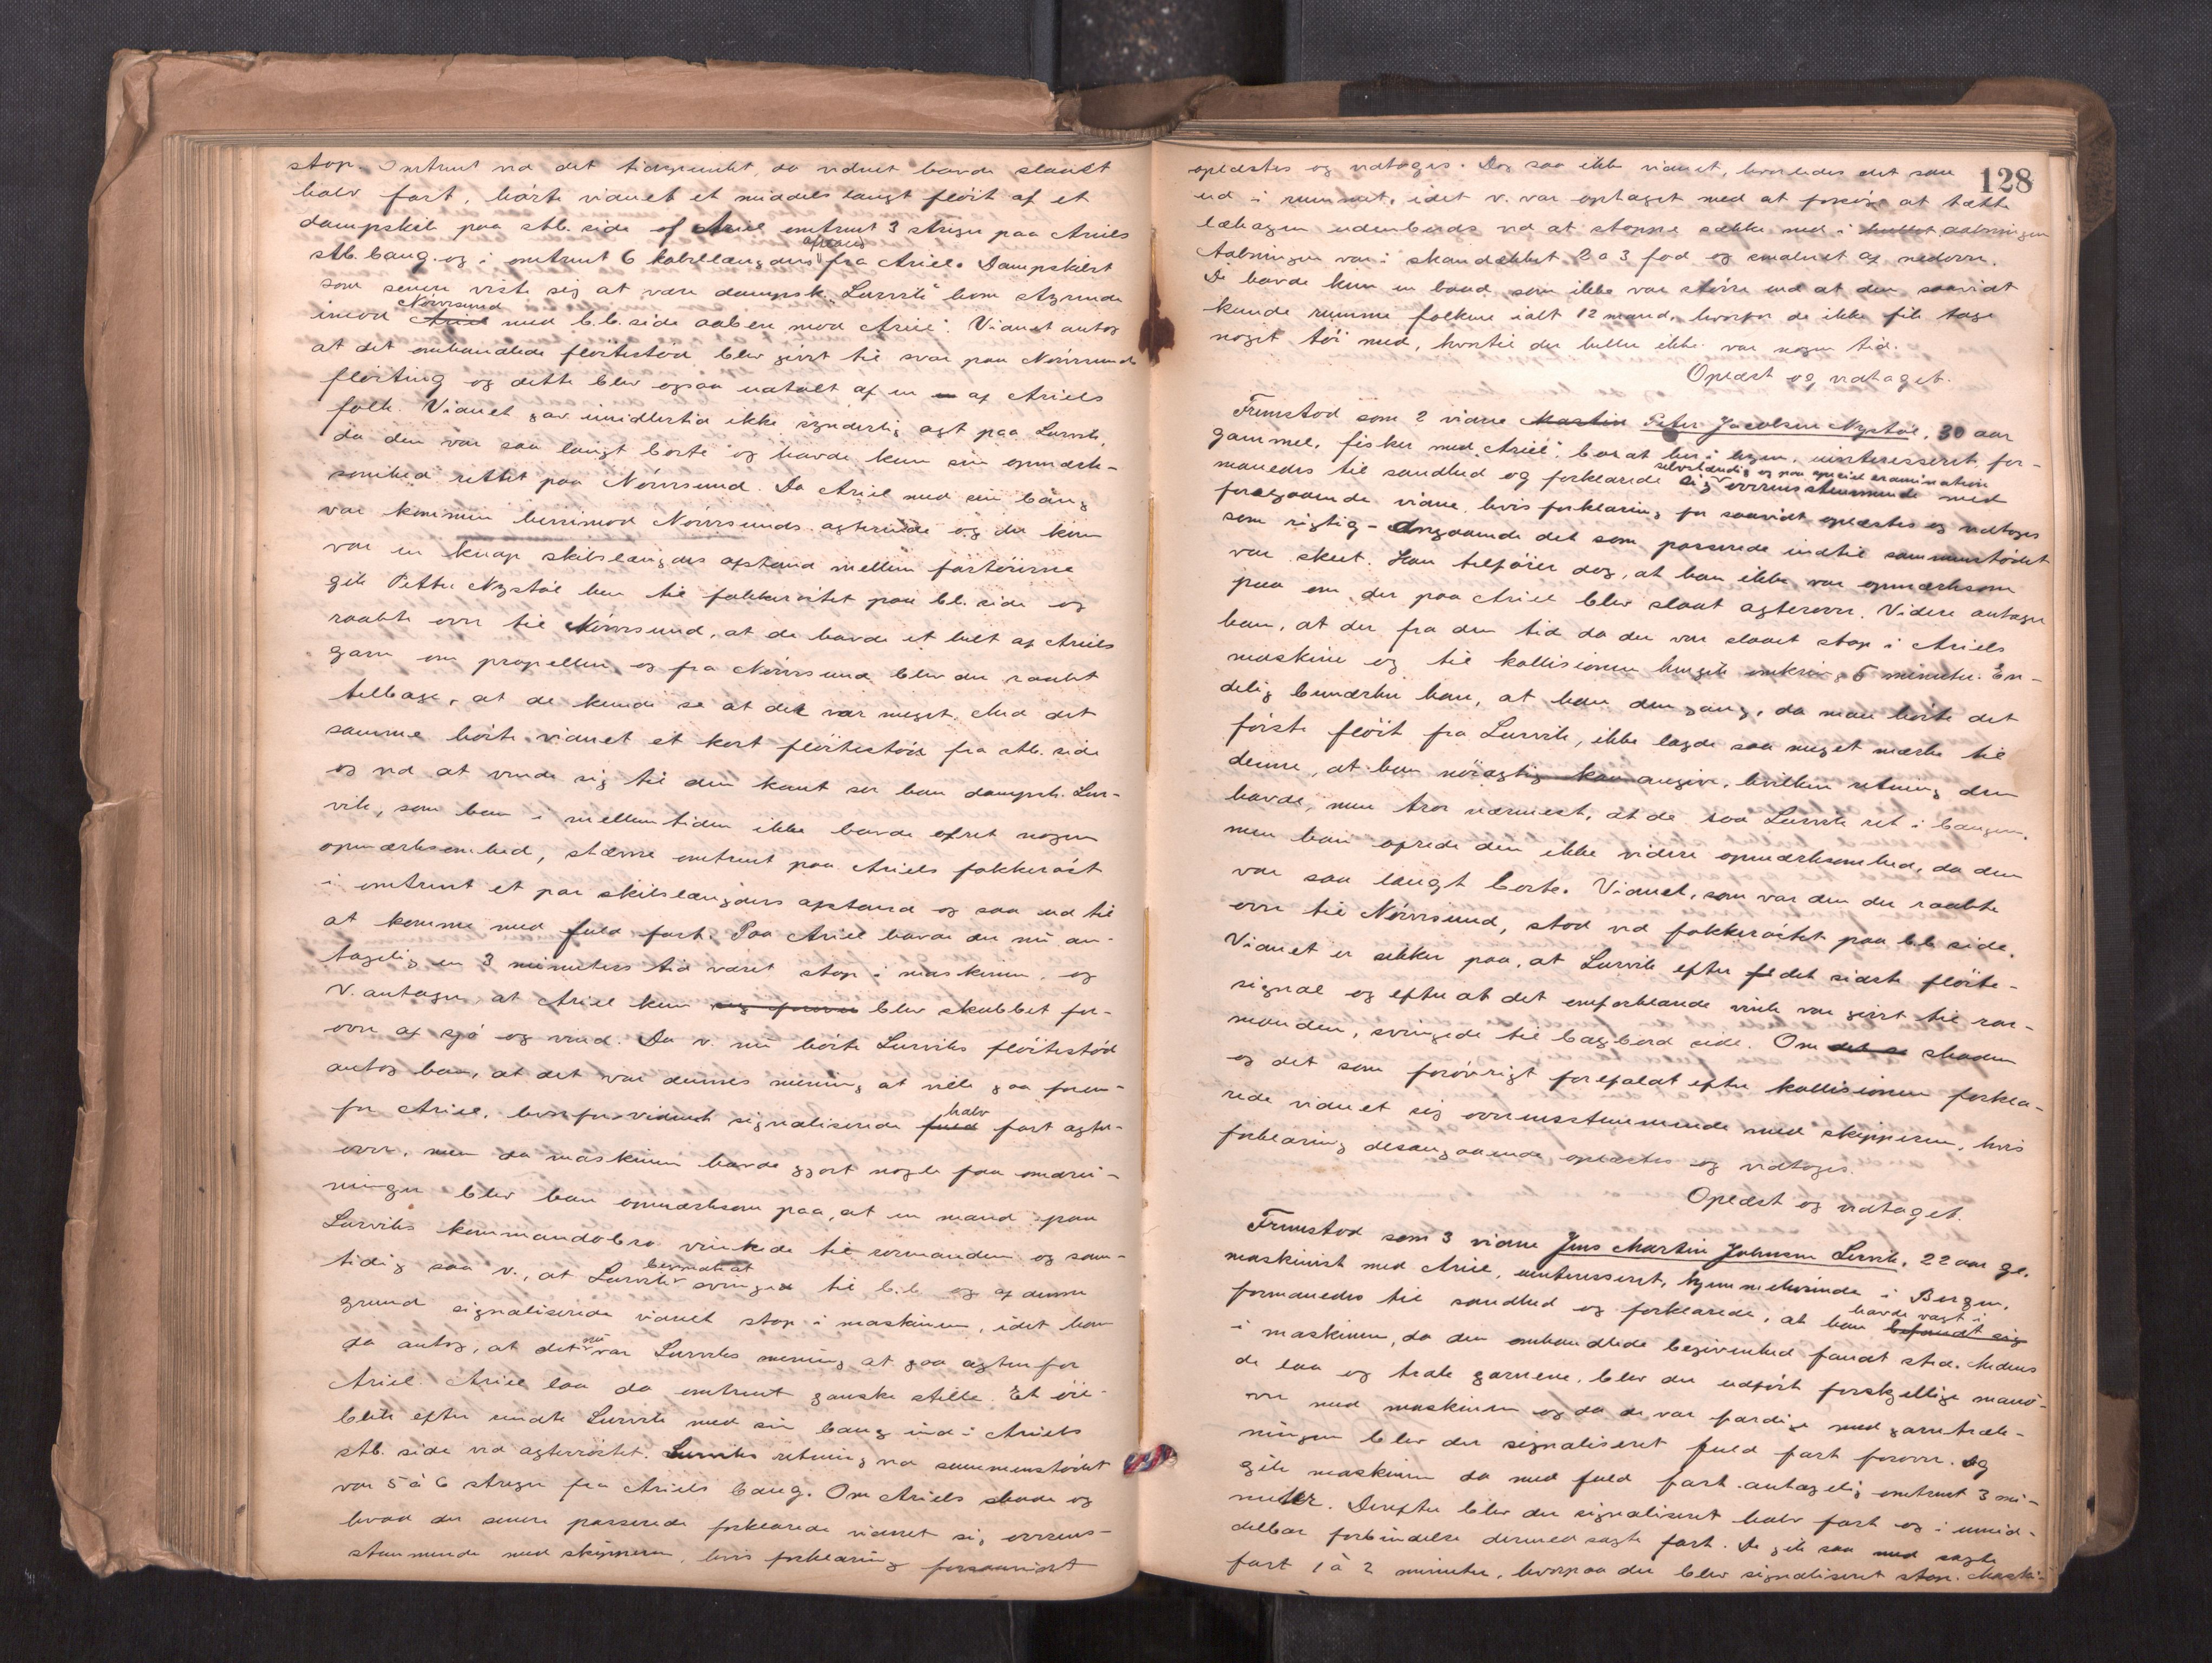 stop. Omtrent ved det tidspunkt, da vidnet havde slaaet
halv fart, hörte vidnet et middels langt flöit af et
dampskib paa stb. side af Ariel omtrent 3 streger paa Ariels
stb. baug. og i omtrent 6 kabellængders afstand fra Ariel. Dampskibet
som senere viste sig at være dampsk. "Lurvik" kom styrende
imod Ariel Nörvesund med b.b. side aaben mod Ariel. Vidnet antog
at det omhandlede flöitestöd blev givet til svar paa Nörvesunds
flöiting og dette blev ogsaa udtalt af en af Ariels
folk. Vidnet gav imidlertid ikke synderlig agt paa Lurvik,
da den var saa langt borte og havde kun sin opmærk-
somhed rettet paa Nörvesund. Da Ariel med sin baug
var kommen henimod Nörvesunds agterende og der kun
var en knap skibslængdes afstand mellem fartöierne
gik Petter Nystöl hen til fokkeröstet paa bb. side og
raabte over til Nörvesund, at de havde et helt af Ariels
garn om propellen, og fra Nörvesund blev der raabt
tilbage, at de kunde se at det var meget. Med det
samme hörte vidnet et kort flöitestöd fra stb. side
og ved at vende sig til den kant ser han dampsk. Lur-
vik, som han i mellemtiden ikke havde ofret nogen
opmærksomhed, stævne omtrent paa Ariels fokkeröst
i omtrent et par skibslængders afstand og saa ud til
at komme med fuld fart. Paa Ariel havde der nu an-
tagelig en 3 minuters tid været stop i maskinen, og
v. antager, at Ariel kun blev skubbet for-
over af sjö og vind. Da v. nu hörte Lurviks flöitestöd
antog han, at det var dennes mening at ville gaa foren-
for Ariel, hvorfor vidnet signaliserede fuld halv fart agter-
over, men da maskinen havde gjort nogle faa omdrei-
ninger blev han opmærksom paa, at en mand paa
Lurviks kommandobro vinkede til rormanden og sam-
tidig saa v., at Lurvik svinget til b.b. og af denne
grund signaliserede vidnet stop i maskinen, idet han
da antog, at det nu var Lurviks mening at gaa agtenfor
Ariel. Ariel laa da omtrent ganske stille. Et öie-
blik efter rendte Lurvik med sin baug ind i Ariels
stb. side ved agterröstet. Lurviks retning ved sammenstödet
var 5 à 6 streger fra Ariels baug. Om Ariels skade og
hvad der senere passerede forklarede vidnet sig overens-
stemmende med skipperen, hvis forklaring forsaavidt
128
oplæstes og vedtoges. Dog saa ikke vidnet, hvorledes det saa
ud i rummet, idet v. var optaget med at forsöge at tætte
lækagen udenbords ved at stoppe sække ned i hullet aabningen
Aabningen var i skandækket 2 a 3 fod og smalnet af nedover.
De havde kun en baad som ikke var större end at den saavidt
kunde rumme folkene ialt 12 mand, hvorfor de ikke fik tage
noget töi med, hvortil der heller ikke var nogen tid.
Oplæst og vedtaget.
Fremstod som 2 vidne Martin Peter Jacobsen Nystöl, 30 aar
gammel, fisker med "Ariel", uinteresseret, for-
manedes til sandhed og forklarede sig selvstændig og paa speciel examination overensstemmende med
foregaaende vidne, hvis forklaring for saavidt oplæstes og vedtoges
som rigtig – Angaaende det som passerede indtil sammenstödet
var skeet. Han tilföier dog, at han ikke var opmærksom
paa om der paa Ariel blev slaat agterover. Videre antager
han, at der fra den tid da der var slaaet stop i Ariels
maskine og til kollisionen hengik omkring 5 minuter. En-
delig bemærker han, at han den gang, da man hörte det
förste flöit fra Lurvik, ikke lagde saa meget mærke til
denne, at han nöiagtig kan angive, hvilken retning den
havde, men tror nærmest, at de saa Lurvik ret i baugen.
men han ofrede den ikke videre opmærksomhed, da den
var saa langt borte. Vidnet, som var den der raabte
over til Nörvesund, stod ved fokkeröstet paa bb side.
Vidnet er sikker paa, at Lurvik efter det sidste flöite-
signal og efter at det omforklarede vink var givet til ror-
manden, svingede til bagbord side. Om skaden
og det som forövrigt forefaldt efter kollisionen forkla-
rede vidnet sig overensstemmende med skipperen, hvis
forklaring desangaaende oplæstes og vedtoges.
Oplæst og vedtaget.
Fremstod som 3 vidne Jens Martin Johnsen Lervik, 22 aar gl.
maskinist med Ariel, uinteresseret, hjemmehörende i Bergen,
formanedes til sandhed og forklarede, at han befandt sig havde vagt i
i maskinen, da den omhandlede begivenhed fandt sted. Medens
de laa og trak garnene, blev der udfört forskjellige manö-
vre med maskinen og da de var færdige med garntræk-
ningen blev der signaliseret fuld fart forover. Og
gik maskinen da med fuld fart antagelig omtrent 3 mi-
nuter. Derefter blev der signaliseret halv fart og i umid-
delbar forbindelse dermed sagte fart. De gik saa med sagte
fart 1 à 2 minuter, hvorpaa der blev signaliseret stop. Maski-